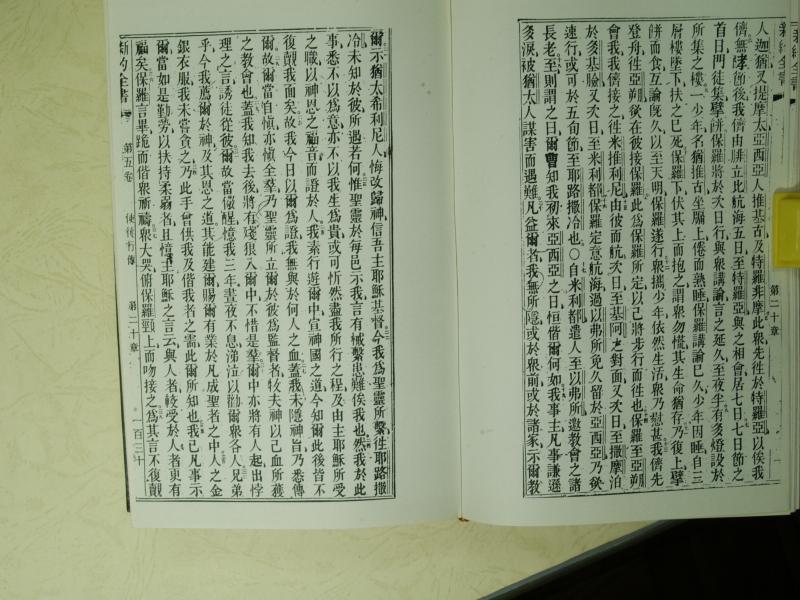 第二十章
人迦猶又提摩太亞西亞人推基古及特羅非摩此衆先徃於特羅亞以俟我
儕無酵節後我儕由腓立比航海五日至特羅亞與之相會居七日七日節之
首日門徒集擘餅保羅將於次日行與衆講論言之延久至夜半有多燈設於
所集之樓一少年名猶推古坐牖上倦而熟睡保羅講論已久少年因睡自三
層樓墜下扶之已死保羅下伏其上而抱之謂衆勿慌其生命猶存乃復上擘
餅而食互論旣久以至天明保羅遂行衆攜少年依然生活衆乃慰甚我儕先
登舟徃亞朔欲在彼接保羅此爲保羅所定以己將步行而徃也保羅至亞朔
會我我儕接之徃米推利尼由彼而航次日至基阿之對面又次日至撒摩泊
於多基險又次日至米利都保羅定意航海過以弗所免久留於亞西亞乃欲
速行或可於五旬節至耶路撒冷也○自米利都遣人至以弗所邀教會之諸
長老至則謂之曰爾曹知我初來亞西亞之日恒偕爾何如我事主凡事謙遜
多淚被猶太人謀害而遇難凡益爾者我無所隱或於衆前或於諸家示爾教
爾示猶太希利尼人悔改歸神信吾主耶穌基督今我爲聖靈所繫徃耶路撒
冷未知於彼所遇若何惟聖靈於每邑示我言有械繫患難俟我也然我於此
事悉不以爲意亦不以我生爲貴或可忻然盡我所行之程及由主耶穌所受
之職以神恩之福音而證於人我素行遊爾中宣神國之道今知爾此後皆不
復覿我面矣故我今日以爾爲證我無與於何人之血蓋我未隱神旨乃悉傳
爾故爾當自愼亦愼全羣乃聖靈所立爾於彼爲監督者牧夫神以己血所獲
之教會也蓋我知我去後將有殘狠入爾中不惜是羣爾中亦將有人起出悖
理之言誘徒從彼爾故當儆醒憶我三年晝夜不息涕泣以勸爾衆各人兄弟
乎今我薦爾於神及其恩之道其能建爾賜爾有業於凡成聖者之中人之金
銀衣服我未嘗貪之乃此手曾供我及偕我者之需此爾所知也我已凡事示
爾當如是勤勞以扶持柔弱者且憶主耶穌之言云與人者較受於人者更有
福矣保羅言畢跪而偕衆祈禱衆大哭俯保羅頸上而吻接之爲其言不復覿
新約全書 第五卷 使徒行傳 第二十章 一百三十